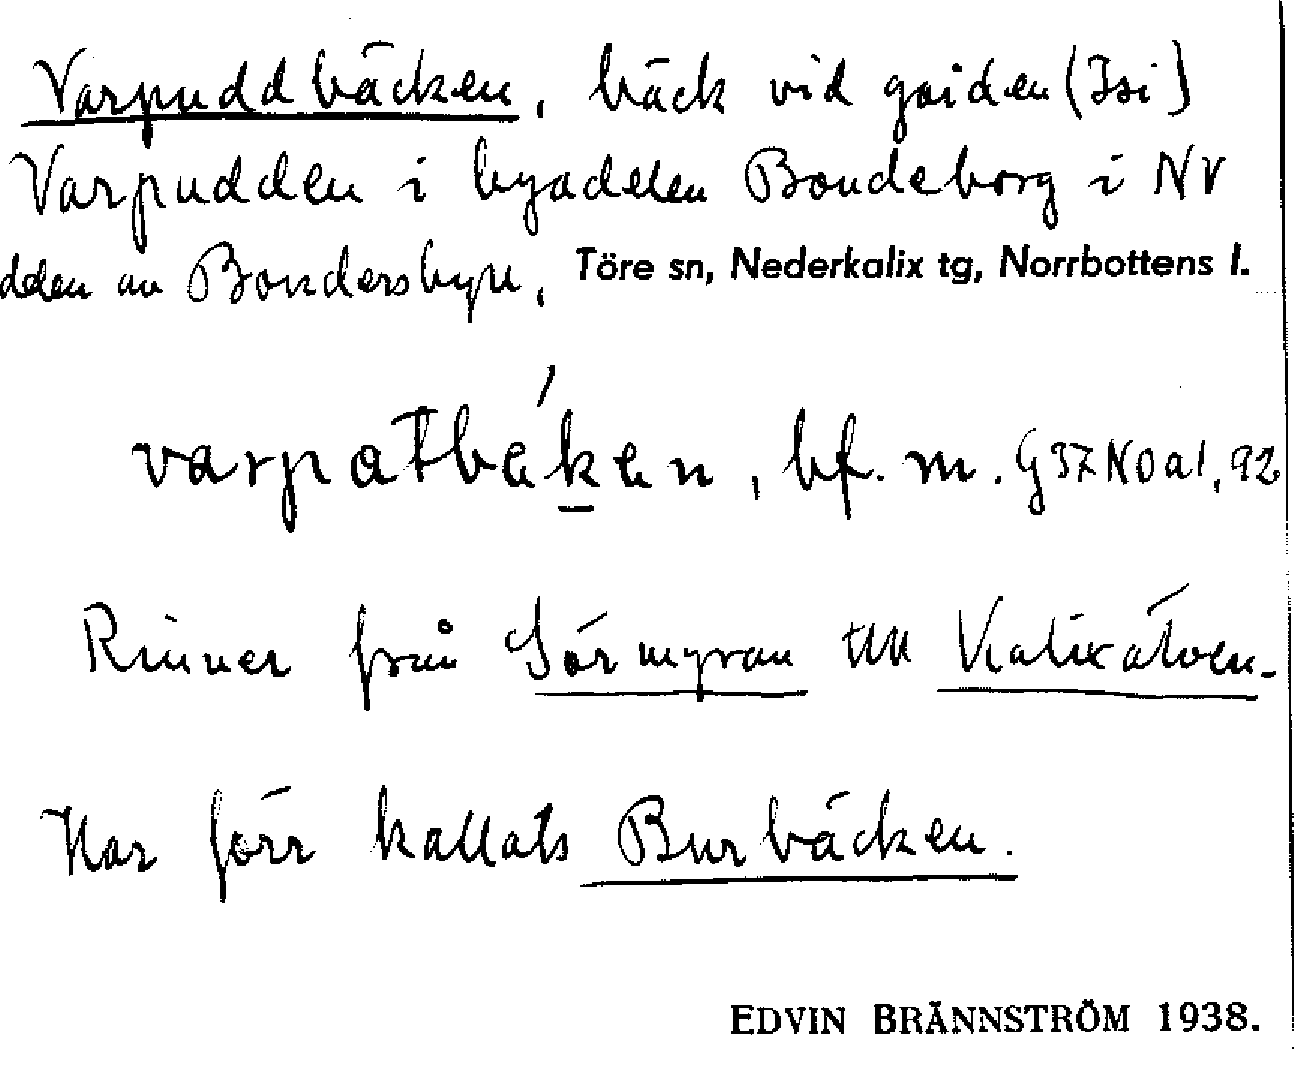 Varpuddbäcken, bäck vid gården (Isi)
Varpudden i byadelen Bondeborg i NV
delen av Bondersbyn, Töre sn, Nederkalix tg, Norrbottens l.
varpatbéken, bf. m. G37NOa1,92
Rinner från Sörmyran till Kalixälven.
Har förr kallats Burbäcken.
EDVIN BRÄNNSTRÖM 1938.